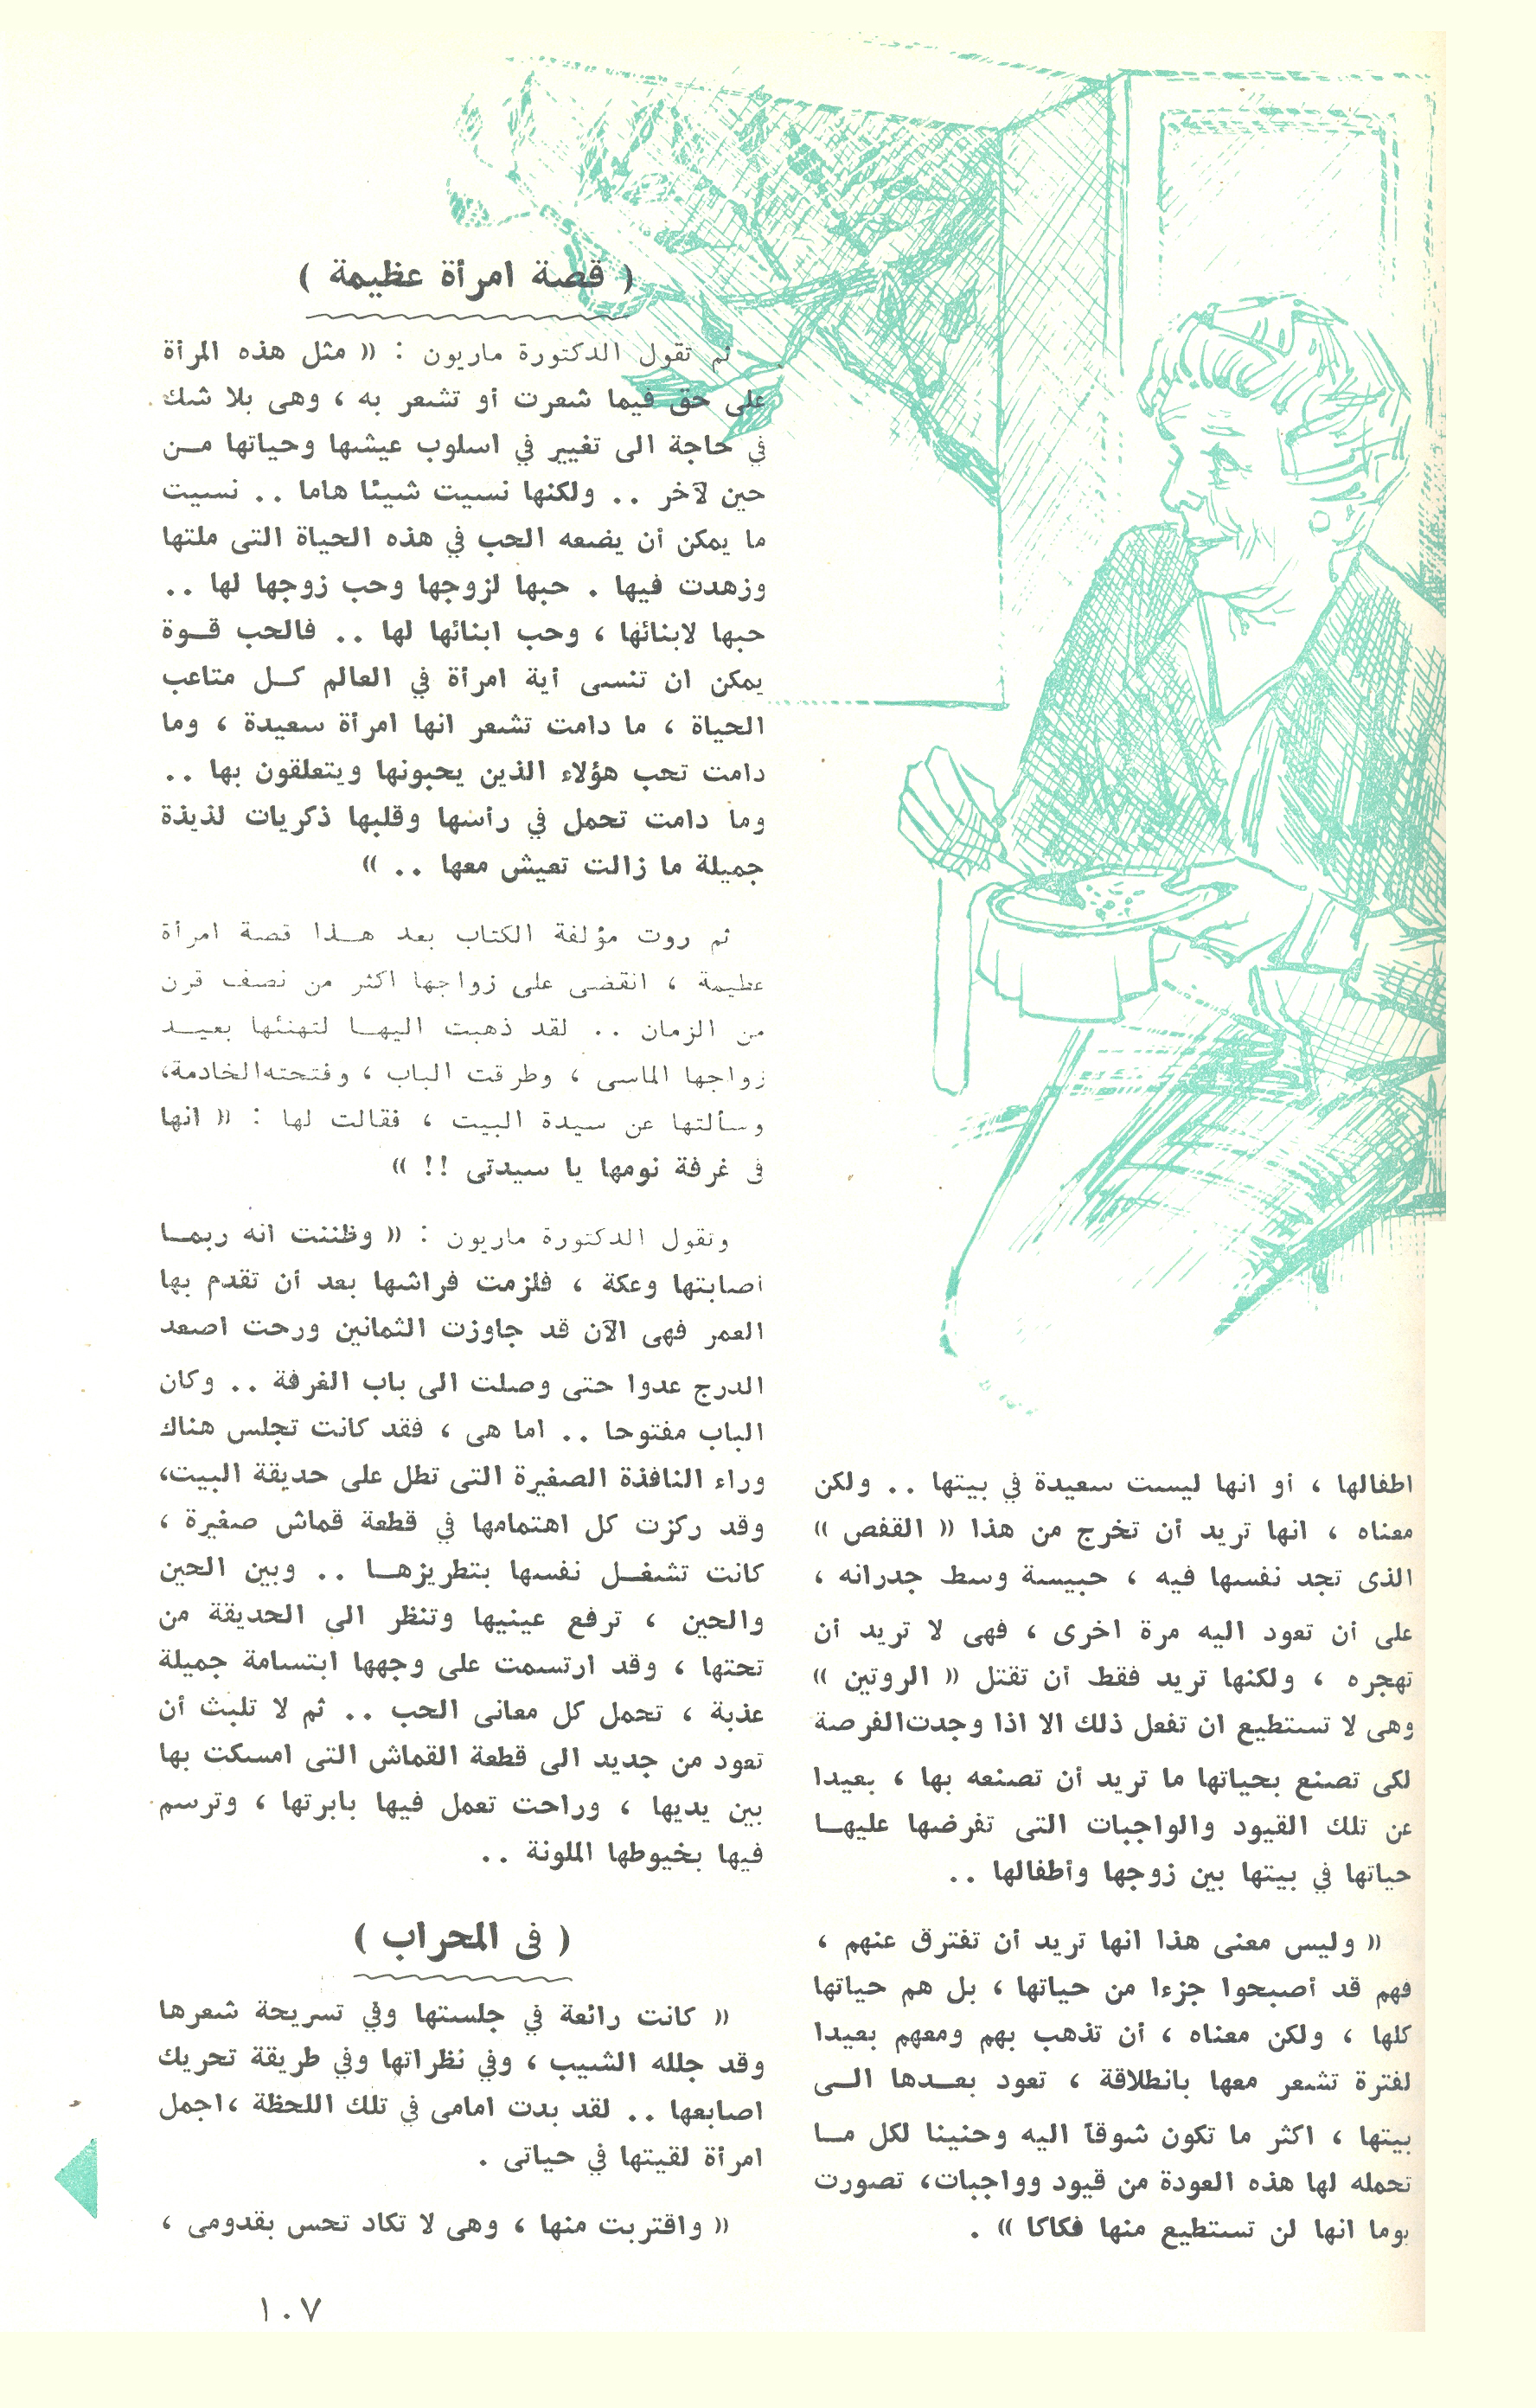 اطفالها ، أو انها ليست سعيدة في بيتها .. ولكن
معناه ، انها تريد أن تخرج من هذا « القفص »
الذى تجد نفسها فيه ، حبيسة وسط جدرانه ،
على أن تعود اليه مرة اخرى ، فهى لا تريد أن
تهجره ، ولكنها تريد فقط أن تقتل « الروتين »
وهى لا تستطيع ان تفعل ذلك الا اذا وجدت الفرصة
لكى تصنع بحياتها ما تريد أن تصنعه بها ، بعيدا
عن تلك القيود والواجبات التى تفرضها عليهــا
حياتها في بيتها بين زوجها وأطفالها ..
« وليس معنى هذا انها تريد أن تفترق عنهم ،
فهم قد أصبحوا جزءا من حياتها ، بل هم حياتها
كلها ، ولكن معناه ، أن تذهب بهم ومعهم بعيدا
لفترة تشعر معها بانطلاقة ، تعود بعــدها الــى
بيتها ، اكثر ما تكون شوقآ اليه وحنينا لكل مــا
تحمله لها هذه العودة من قيود وواجبات، تصورت
يوما انها لن تستطيع منها فكاكا » .
( قصة امرأة عظيمة )
ثم تقول الدكتورة ماريون : « مثل هذه المرأة
على حق فيما شعرت أو تشعر به ، وهى بلا شك
في حاجة الى تغيير في اسلوب عيشها وحياتها مــن
حين لآخر .. ولكنها نسيت شيئا هاما .. نسيت
ما يمكن أن يضعه الحب في هذه الحياة التى ملتها
وزهدت فيها . حبها لزوجها وحب زوجها لها ..
حبها لابنائها ، وحب ابنائها لها .. فالحب قــوة
يمكن ان تنسى أية امرأة في العالم كــل متاعب
الحياة ، ما دامت تشعر انها امرأة سعيدة ، وما
دامت تحب هؤلاء الذين يحبونها ويتعلقون بها ..
وما دامت تحمل في رأسها وقلبها ذكريات لذيذة
جميلة ما زالت تعيش معها .. »
ثم روت مؤلفة الكتاب بعد هــذا قصة امرأة
عظيمة ، انقضى على زواجها اكثر من نصف قرن
من الزمان .. لقد ذهبت اليهــا لتهنئها بعيــد
زواجها الماسى ، وطرقت الباب ، وفتحته الخادمة،
وسألتها عن سيدة البيت ، فقالت لها : « انها
فى غرفة نومها يا سيدتى !! »
وتقول الدكتورة ماريون : « وظننت انه ربمــا
اصابتها وعكة ، فلزمت فراشها بعد أن تقدم بها
العمر فهى الآن قد جاوزت الثمانين ورحت اصعد
الدرج عدوا حتى وصلت الى باب الغرفة .. وكان
الباب مفتوحا .. اما هى ، فقد كانت تجلس هناك
وراء النافذة الصغيرة التى تطل على حديقة البيت،
وقد ركزت كل اهتمامها في قطعة قماش صغيرة ،
كانت تشغــل نفسها بتطريزهــا .. وبين الحين
والحين ، ترفع عينيها وتنظر الى الحديقة من
تحتها ، وقد ارتسمت على وجهها ابتسامة جميلة
عذبة ، تحمل كل معانى الحب .. ثم لا تلبث أن
تعود من جديد الى قطعة القماش التى امسكت بها
بين يديها ، وراحت تعمل فيها بابرتها ، وترسم
فيها بخيوطها الملونة ..
( فى المحراب )
« كانت رائعة في جلستها وفي تسريحة شعرها
وقد جلله الشيب ، وفي نظراتها وفي طريقة تحريك
اصابعها .. لقد بدت امامى في تلك اللحظة ، اجمل
امرأة لقيتها في حياتى .
« واقتربت منها ، وهى لا تكاد تحس بقدومى ،
١٠٧